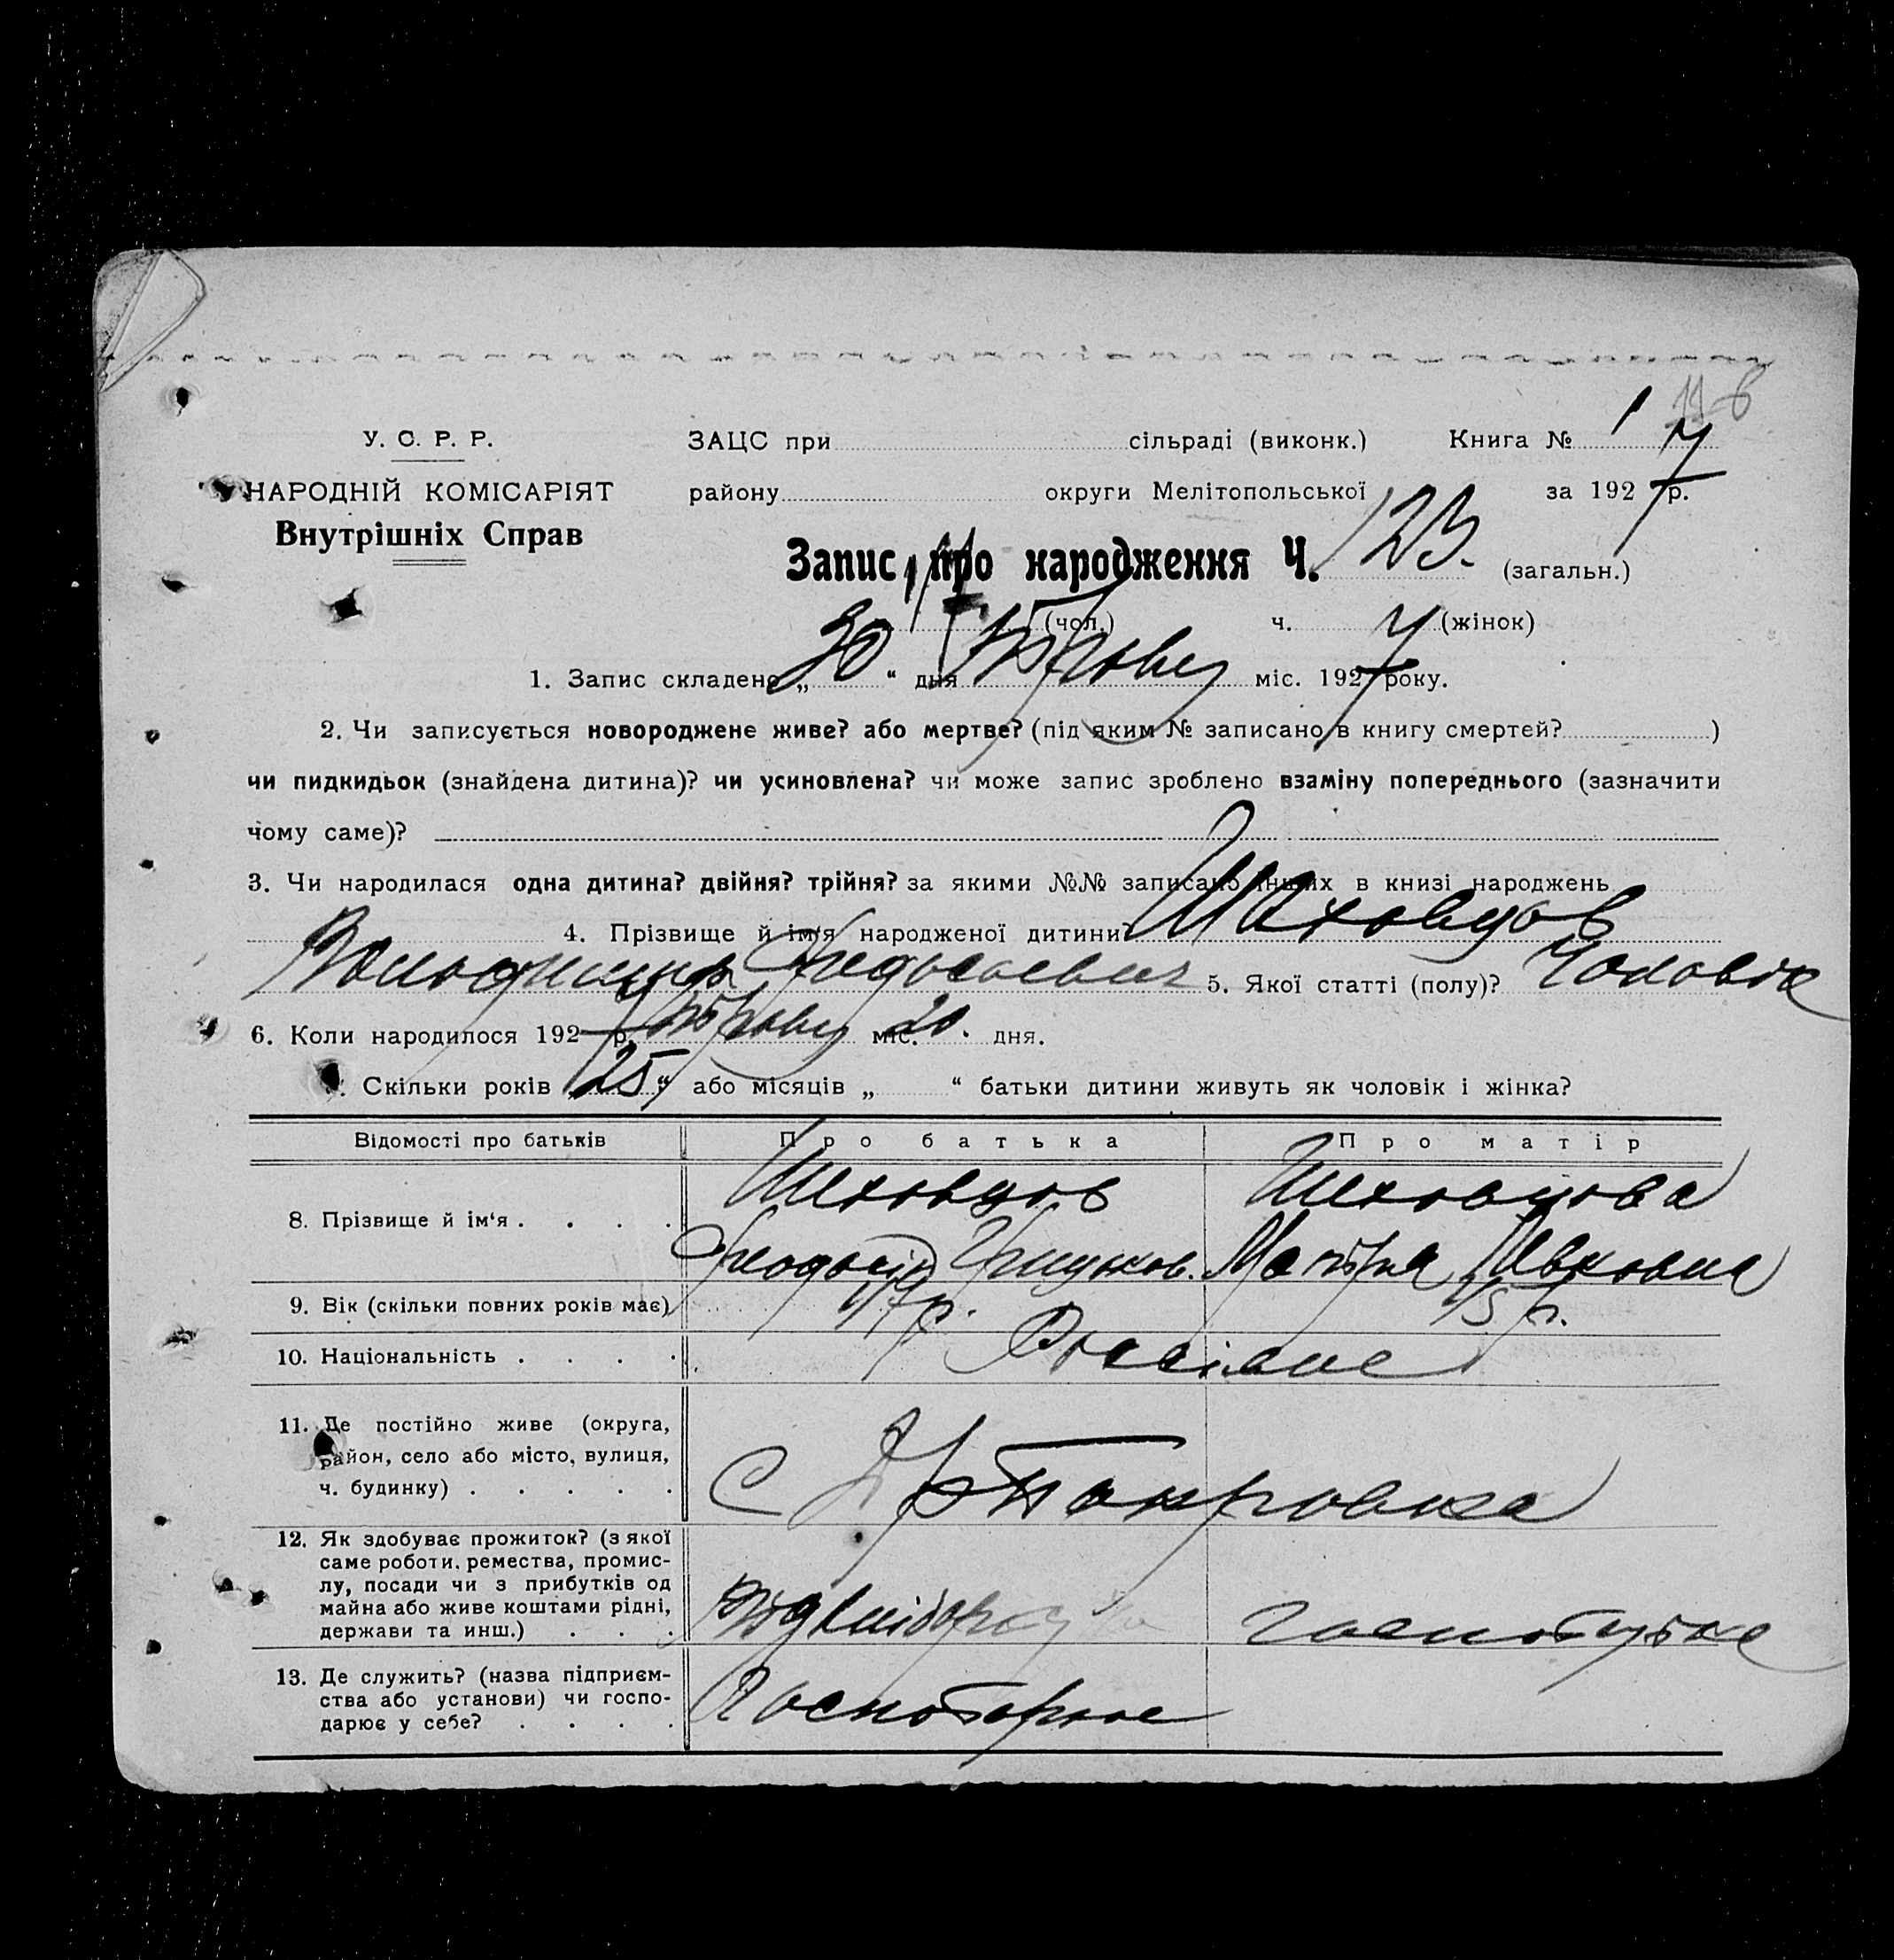 118
У. С. Р. Р. ЗАЦС при сільраді (виконк.) Книга № 1
НАРОДНІЙ КОМІСАРІЯТ району округи Мелітопольської за 1927 р.
Внутрішніх Справ
Запис про народження Ч. 123. (загальн.)
(чол.) ч. (жінок)
1. Запис складено „ 30 “ дня міс. 1927 року.
2. Чи записується новороджене живе? або мертве? (під яким № записано в книгу смертей? )
чи пидкидьок (знайдена дитина)? чи усиновлена? чи може запис зроблено взаміну попереднього (зазначити
чому саме)?
3. Чи народилася одна дитина? двійня? трійня? за якими №№ записано інших в книзі народжень
4. Прізвище й ім'я народженої дитини? Шаховцов
Володимир Федосаевич 5. Якої статті (полу)? Чоловік
6. Коли народилося 192 р. міс. 20. дня.
Скільки років „ 25 “ або місяців „ “ батьки дитини живуть як чоловік і жінка?
Відомості про батьків Про батька Про матір
8. Прізвище й ім‘я . . . . Шеховцов Шеховцова
Феодосій Мотря
9. Вік (скільки повних років має)
10. Національність . . . . Россіяне
11. Де постійно живе (округа,
район, село або місто, вулиця,
ч. будинку) . . . . . С Покровка
12. Як здобуває прожиток? (з якої
саме роботи, ремества, промис-
лу, посади чи з прибутків од
майна або живе коштами рідні,
держави та инш.) . . .
13. Де служить? (назва підприєм-
ства або установи) чи госпо-
дарює у себе? . . . .